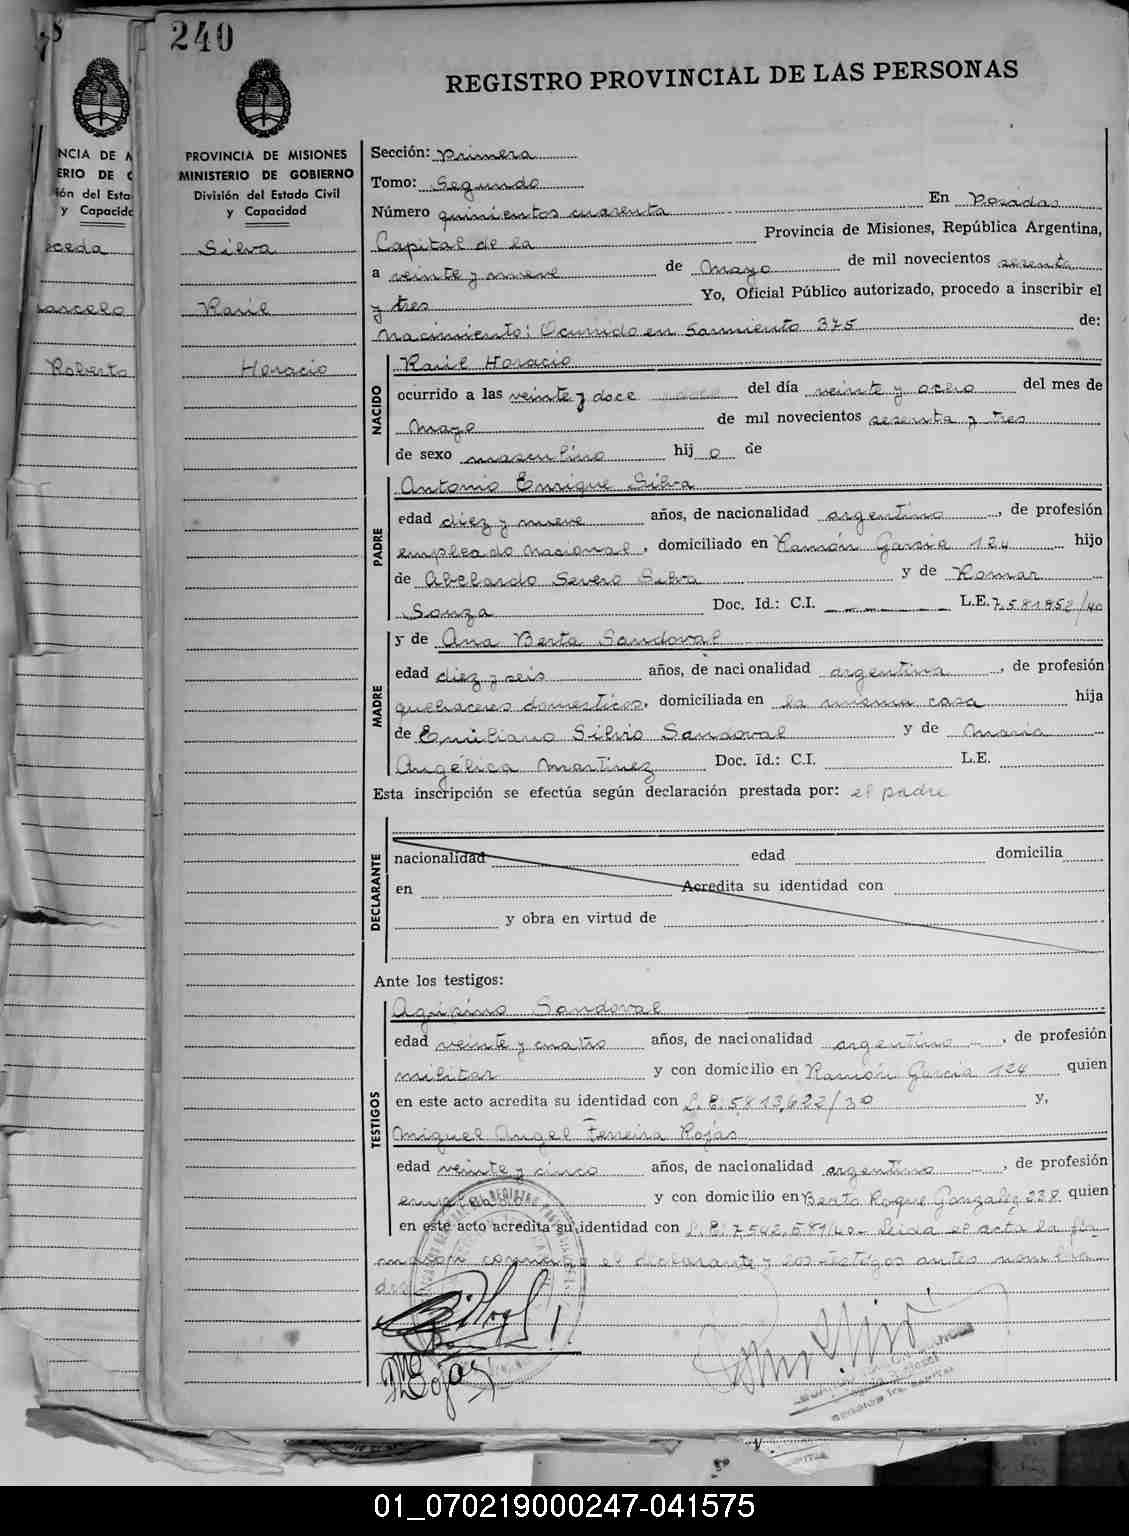 240
REGISTRO PROVINCIAL DE LAS PERSONAS
NCIA DE M
ERIO DE G
ión del Esta
y Capacida
oceda
arcelo
Roberto
PROVINCIA DE MISIONES
MINISTERIO DE GOBIERNO
División del Estado Civil
y Capacidad
Silva
Raúl
Horacio
Sección: Primera
Tomo: Segundo
Número quinientos cuarenta En Posadas
Capital de la Provincia de Misiones, República Argentina,
a veinte y nueve de Mayo de mil novecientos sesenta
y tres Yo, Oficial Público autorizado, procedo a inscribir el
Nacimiento: Ocurrido en Sarmiento 375 de:
NACIDO
Raúl Horacio
ocurrido a las veinte y doce del día veinte y ocho del mes de
Mayo de mil novecientos sesenta y tres
de sexo masculino hijo de
PADRE
Antonio Enrique Silva
edad diez y nueve años, de nacionalidad argentino, de profesión
empleado nacional, domiciliado en Ramón Garcia 124 hijo
de Abelardo Severo Silva y de Romar
Souza Doc. Id.: C.I. L.E. 7.581852/40
MADRE
y de Ana Berta Sandoval
edad diez y seis años, de nacionalidad argentina, de profesión
quehaceres domesticos, domiciliada en la misma casa hija
de Emiliano Silvio Sandoval y de Maria
Angélica Martinez Doc. Id.: C.I. L.E.
Esta inscripción se efectúa según declaración prestada por: el padre
DECLARANTE
nacionalidad edad domicilia
en Acredita su identidad con
y obra en virtud de
Ante los testigos:
TESTIGOS
Agipino Sandoval
edad veinte y cuatro años, de nacionalidad argentino, de profesión
militar y con domicilio en Ramón Garcia 124 quien
en este acto acredita su identidad con L.E: 5.813.622/30 y,
Miguel Angel Ferreira Rojas
edad veinte y cinco años, de nacionalidad argentino, de profesión
y con domicilio en Berto Roque Gonzalez 228 quien
en este acto acredita su identidad con L.E: 7.542.581/40- Leida el acta la fir
el declarante y los testigos antes nombra
dos
01_070219000247-041575